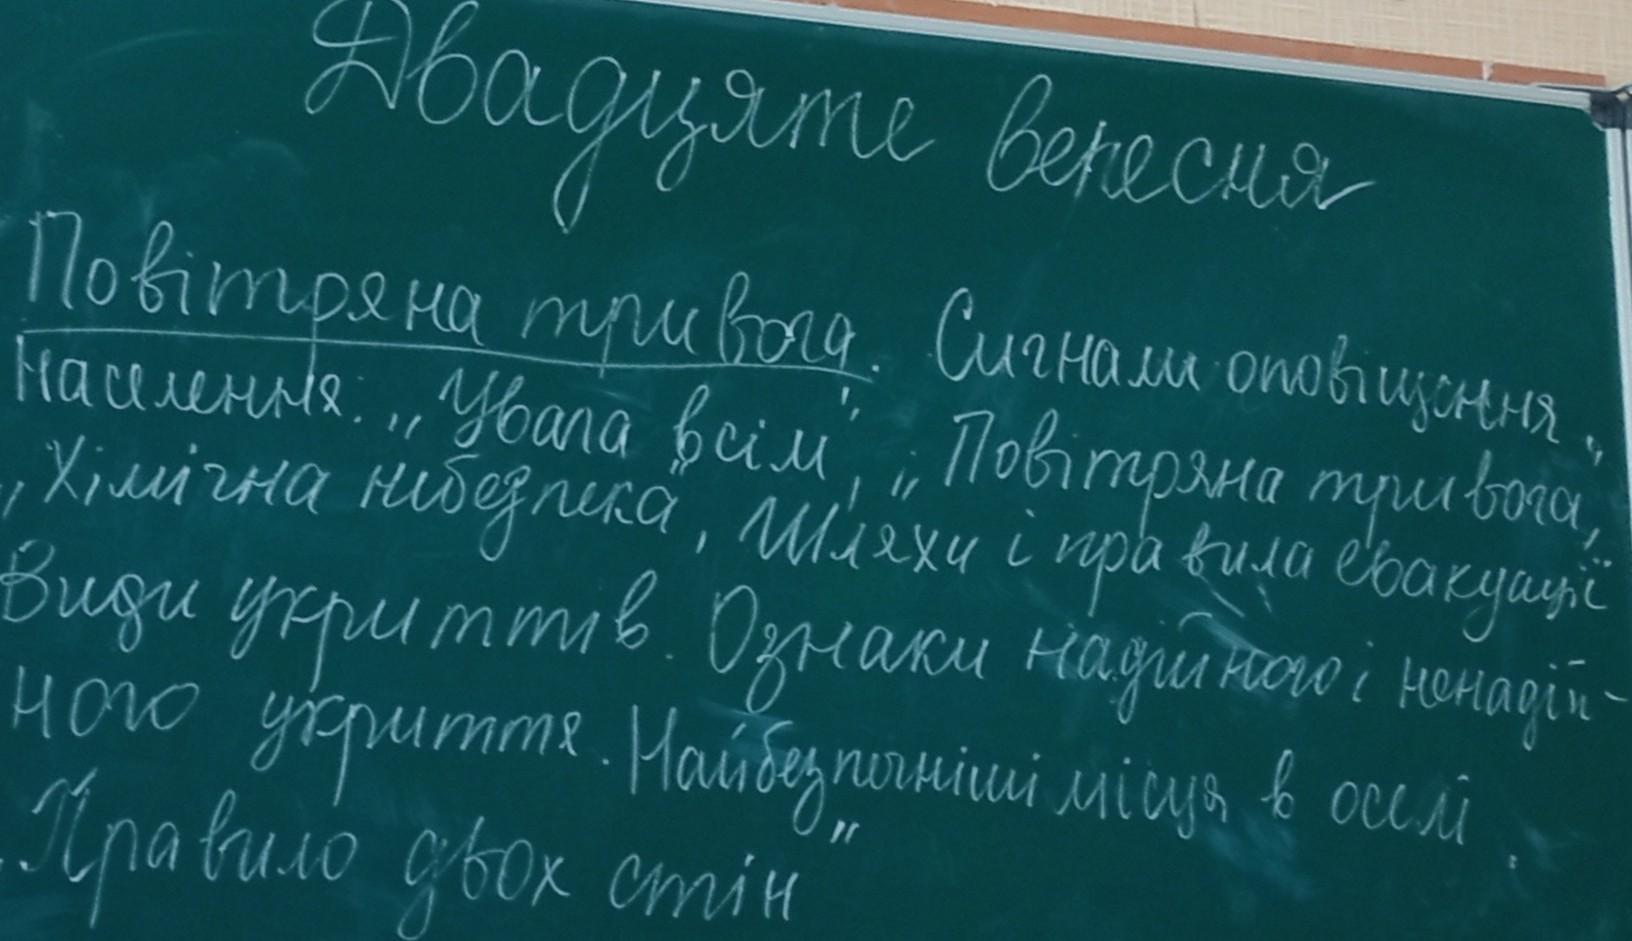 Двадцяте вересня
Повітряна тривога. Сигнали оповіщення
населення: „Увага всім", „Повітряна тривога",
„Хімічна небезпека", Шляхи і правила евакуації
Види укриттів. Ознаки надійного і ненадій-
ного укриття. Найбезпечніші місця в оселі.
„Правило двох стін"